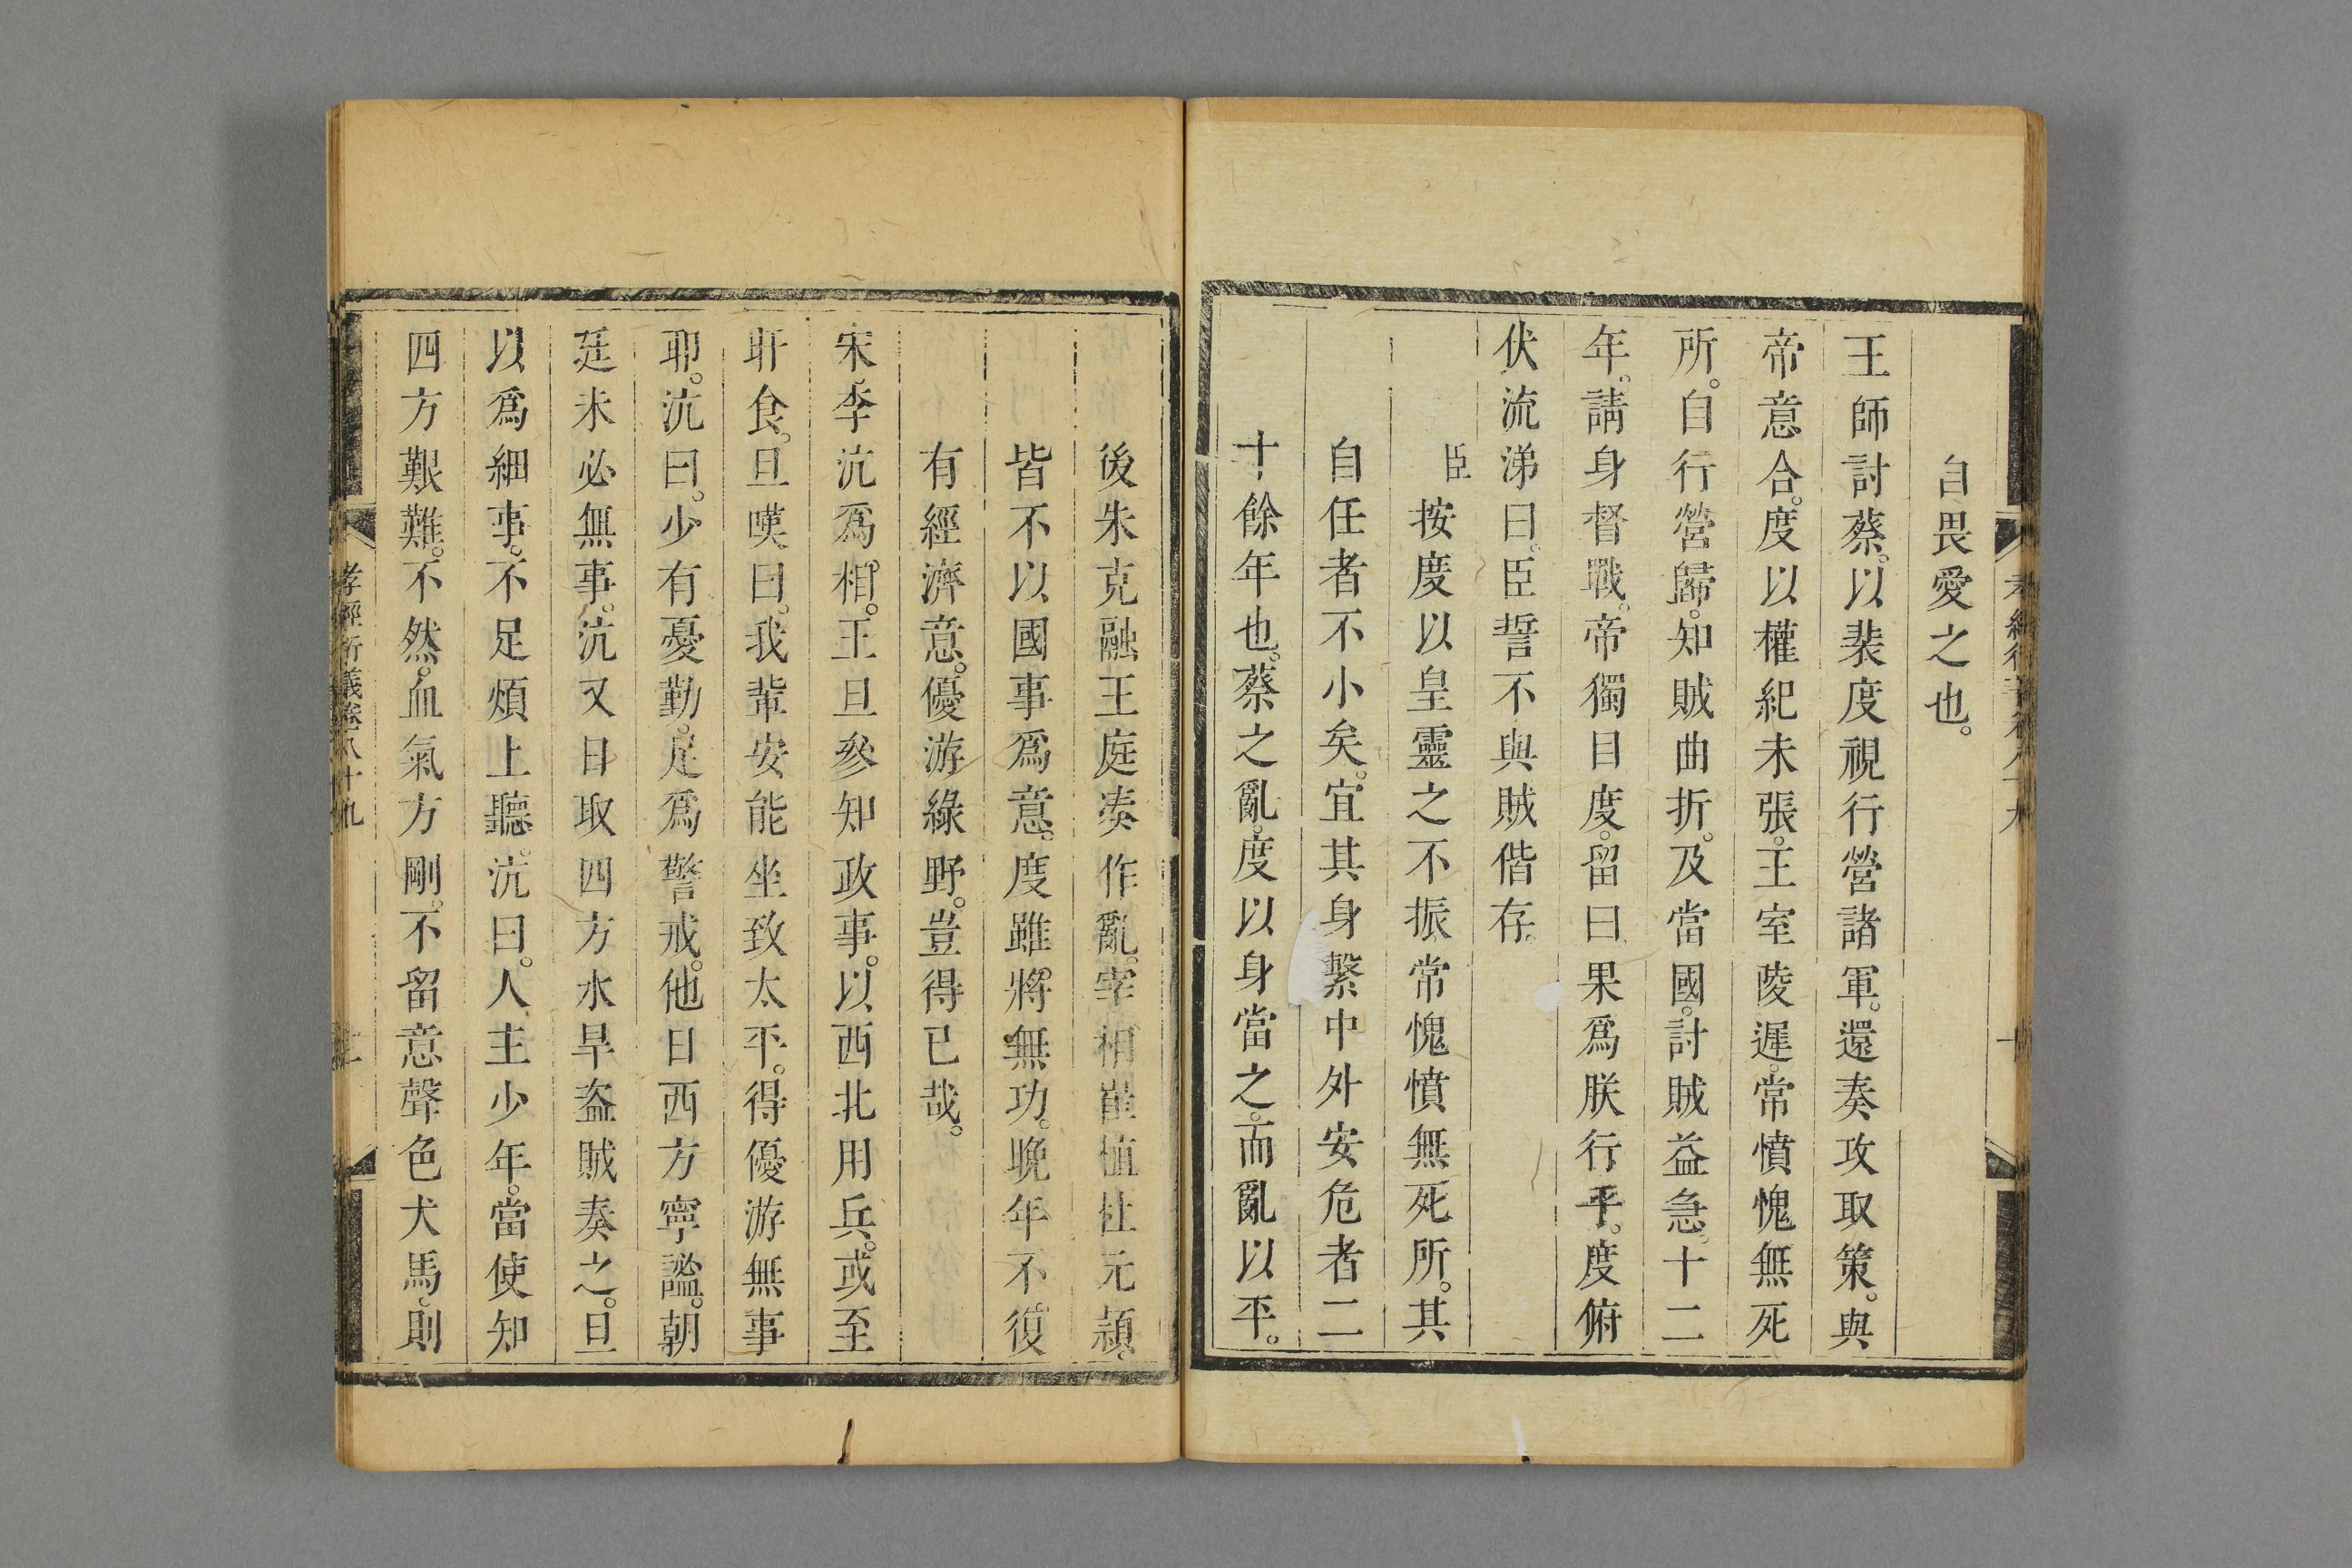 自畏愛之也。
王師討蔡。以裴度視行營諸軍。還奏攻取策。與
帝意合。度以權紀未張。王室陵遲。常憤愧無死
所。自行營歸。知賊曲折。及當國。討賊益急。十二
年。請身督戰。帝獨目度。留曰果爲朕行乎。度俯
伏流涕曰。臣誓不與賊偕存。
臣按度以皇靈之不振常愧憤無死所。其
自任者不小矣。宜其身繫中外安危者二
十餘年也。蔡之亂。度以身當之。而亂以平。
後朱克融王庭湊作亂。宰相崔植杜元穎。
皆不以國事爲意。度雖將無功。晚年不復
有經濟意。優游綠野。豈得已哉。
宋李沆爲相。王旦參知政事。以西北用兵。或至
旰食。旦嘆曰。我輩安能坐致太平。得優游無事
耶。沆曰。少有憂勤。足爲警戒。他日西方寧謐。朝
廷未必無事。沆又日取四方水旱盜賊奏之。旦
以爲細事。不足煩上聽。沆曰。人主少年。當使知
四方艱難。不然。血氣方剛。不留意聲色犬馬。則
孝經衍義卷八十九